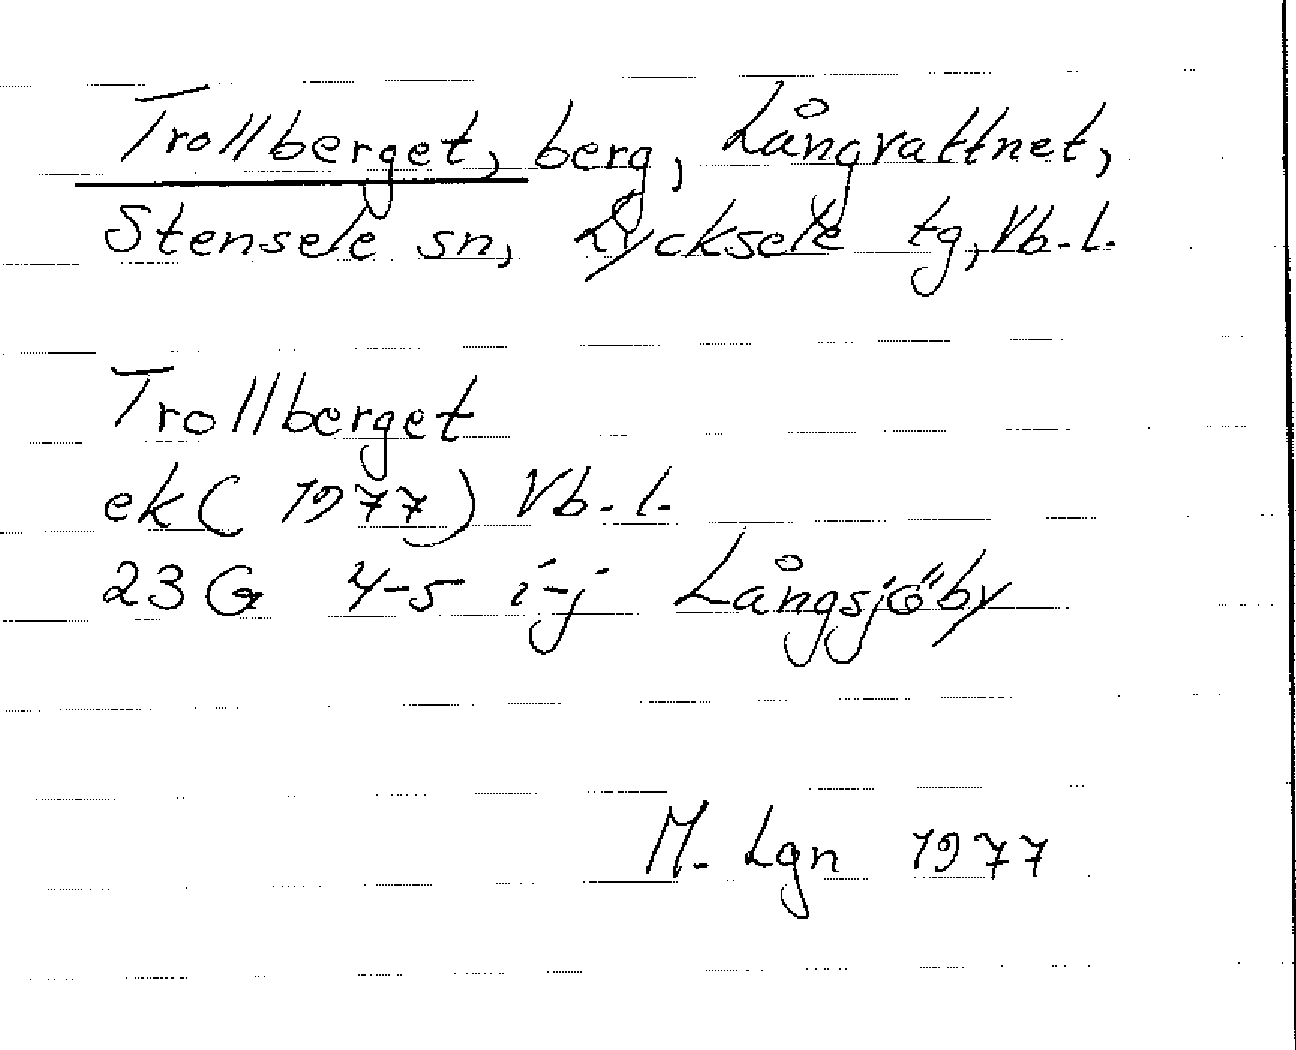 Trollberget, berg, Långvattnet,
Stensele sn, Lycksele tg, Vb.l.
Trollberget
ek (1977) Vb.l.
23 G 4-5 i-j Långsjöby
M. Lgn 1977